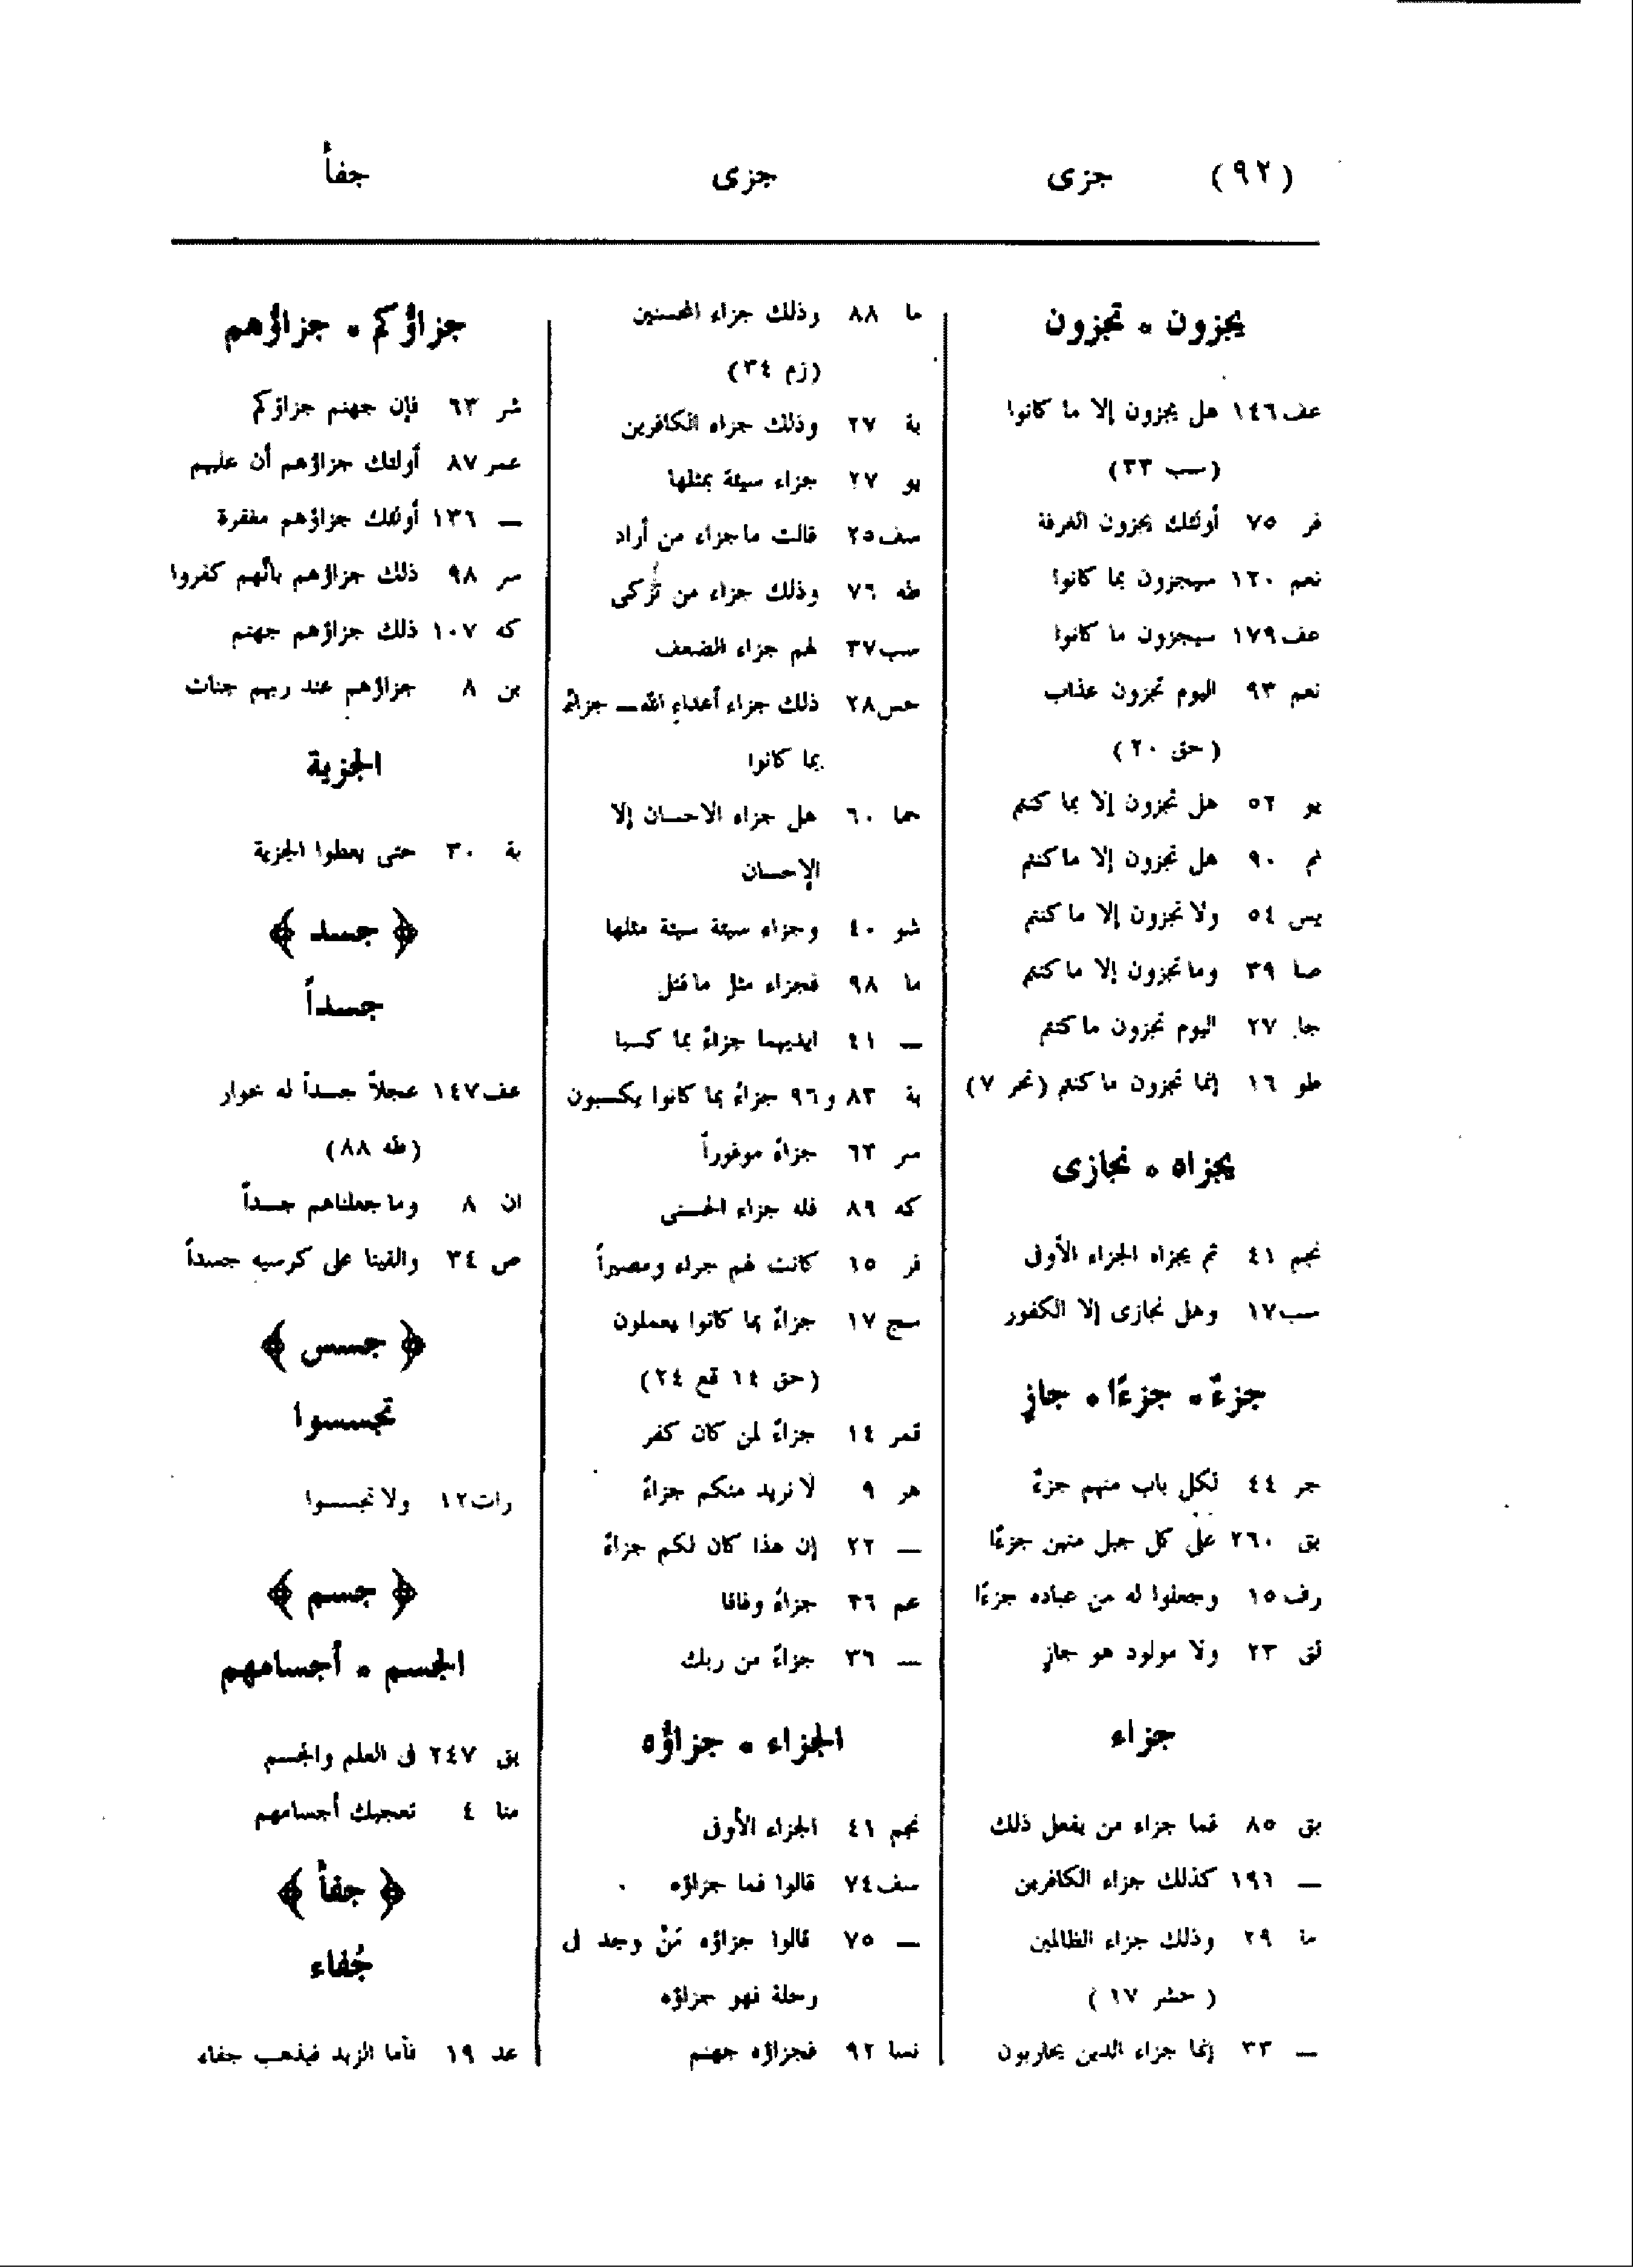 (٩٢) جزى جزى جفأ
يجزون ٠ تجزون
عف ١٤٦ هل يجزون إلا ما كانوا
(سب ٣٣)
فر ٧٥ أولئك يجزون الغرفة
نعم ١٢٠ سيجزون بما كانوا
عف ١٧٩ سيجزون ما كانوا
نعم ٩٣ اليوم تجزون عذاب
(حق ٢٠)
يو ٥٢ هل تجزون إلا بما كنتم
نم ٩٠ هل تجزون إلا ما كنتم
يس ٥٤ ولا تجزون إلا ما كنتم
صا ٣٩ وما تجزون إلا ما كنتم
جا ٢٧ اليوم تجزون ما كنتم
طو ١٦ إنما تجزون ما كنتم (تحر ٧)
يجزاه ٠ نجازى
نجم ٤١ ثم يجزاه الجزاء الأوفى
سب ١٧ وهل نجازى إلا الكفور
جزءٌ ٠ جزءًا ٠ جازٍ
جر ٤٤ لكل باب منهم جزءٌ
بق ٢٦٠ على كل جبل منهن جزءًا
رف ١٥ وجعلوا له من عباده جزءًا
لق ٢٣ ولا مولود هو جازٍ
جزاء
بق ٨٥ فما جزاء من يفعل ذلك
— ١٩١ كذلك جزاء الكافرين
ما ٢٩ وذلك جزاء الظالمين
(حشر ١٧)
— ٣٣ إنما جزاء الذين يحاربون
ما ٨٨ وذلك جزاء المحسنين
(زم ٣٤)
بة ٢٧ وذلك جزاء الكافرين
يو ٢٧ جزاء سيئة بمثلها
سف ٢٥ قالت ما جزاء من أراد
طه ٧٦ وذلك جزاء من تزكى
سب ٣٧ لهم جزاء الضعف
حس ٢٨ ذلك جزاء أعداء الله — جزائم
بما كانوا
حما ٦٠ هل جزاء الاحسان إلا
الإحسان
شو ٤٠ وجزاء سيئة سيئة مثلها
ما ٩٨ فجزاء مثل ما قتل
— ٤١ ايديهما جزاءً بما كسبا
بة ٨٣ و ٩٦ جزاءً بما كانوا يكسبون
سر ٦٣ جزاءً موفوراً
كه ٨٩ فله جزاء الحسنى
فر ١٥ كانت لهم جزاء ومصيراً
سج ١٧ جزاءً بما كانوا يعملون
(حق ١٤ قع ٢٤)
قمر ١٤ جزاءً لمن كان كفر
هر ٩ لا نريد منكم جزاءً
— ٢٢ إن هذا كان لكم جزاءً
عم ٢٦ جزاءً وفاقا
— ٣٦ جزاءً من ربك
الجزاء ٠ جزاؤه
نجم ٤١ الجزاء الأوفى
سف ٧٤ قالوا فما جزاؤه
— ٧٥ قالوا جزاؤه مَنْ وجد فى
رحله فهو جزاؤه
نسا ٩٢ فجزاؤه جهنم
جزاؤكم ٠ جزاؤهم
شر ٦٣ فإن جهنم جزاؤكم
عمر ٨٧ أولئك جزاؤهم أن عليهم
— ١٣٦ أولئك جزاؤهم مغفرة
سر ٩٨ ذلك جزاؤهم بأنهم كفروا
كه ١٠٧ ذلك جزاؤهم جهنم
بن ٨ جزاؤهم عند ربهم جنات
الجزية
بة ٣٠ حتى يعطوا الجزية
﴿ جسد ﴾
جسداً
عف ١٤٧ عجلاً جسداً له خوار
(طه ٨٨)
ان ٨ وما جعلناهم جسداً
ص ٣٤ والقينا على كرسيه جسداً
﴿ جسس ﴾
تجسسوا
رات ١٢ ولا تجسسوا
﴿ جسم ﴾
الجسم ٠ أجسامهم
بق ٢٤٧ فى العلم والجسم
منا ٤ تعجبك أجسامهم
﴿ جفأ ﴾
جُفاء
عد ١٩ فأما الزبد فيذهب جفاء